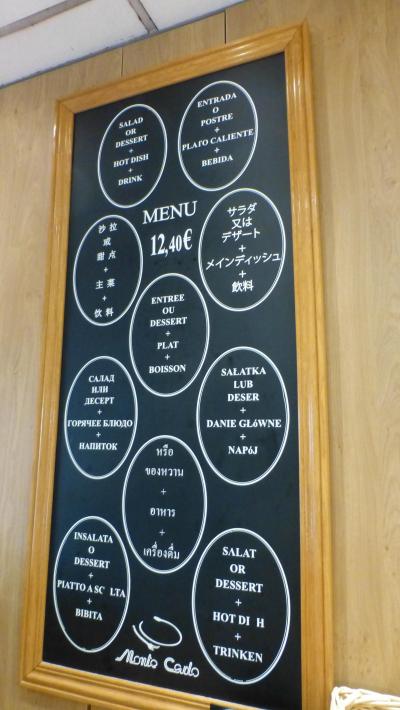 SALAD
OR
DESSERT
+
HOT DISH
+
DRINK
ENTRADA
O
POSTRE
+
PLATO CALIENTE
+
BEBIDA
MENU
12,40€
沙 拉
或
甜 点
+
主 菜
+
饮 料
サラダ
又は
デザート
+
メインディッシュ
+
飲料
ENTREE
OU
DESSERT
+
PLAT
+
BOISSON
САЛАД
ИЛИ
ДЕСЕРТ
+
ГОРЯЧЕЕ БЛЮДО
+
НАПИТОК
SAŁATKA
LUB
DESER
+
DANIE GŁóWNE
+
NAPóJ
หรือ
ของหวาน
+
อาหาร
+
เครื่องดื่ม
INSALATA
O
DESSERT
+
PIATTO A SC LTA
+
BIBITA
SALAT
OR
DESSERT
+
HOT DI H
+
TRINKEN
Monte Carlo